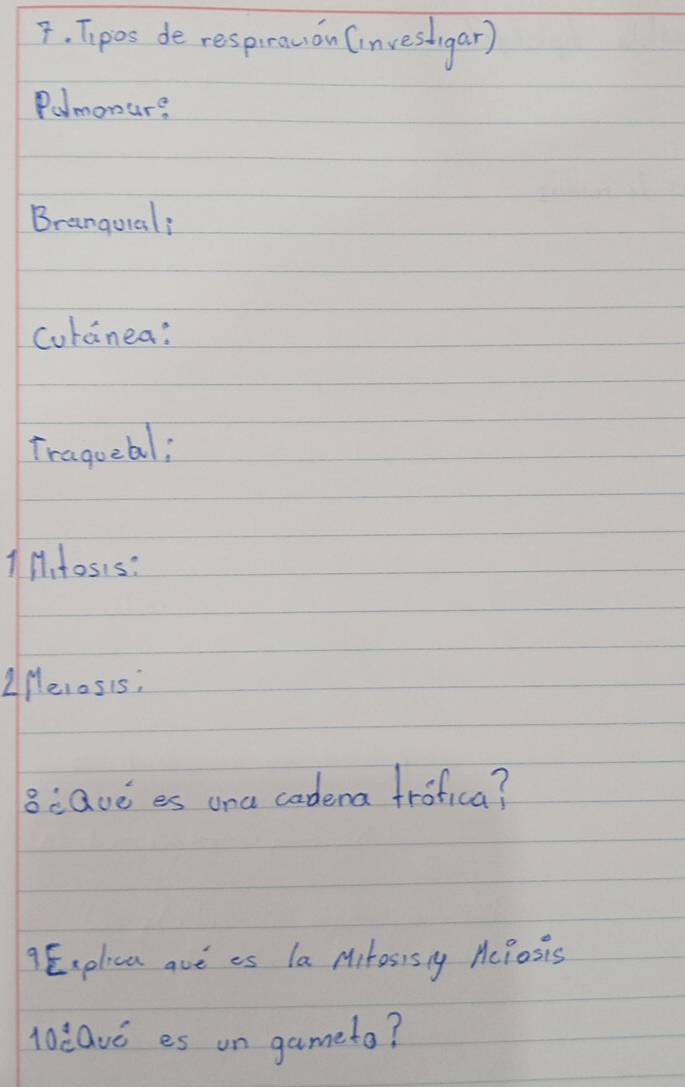 7. Tipos de respiración (investigar)
Pulmonar:
Branquial:
Cutánea:
Traqueal:
1 Mitosis:
2 Meiosis:
8 ¿Qué es una cadena trófica?
9 Explica qué es la Mitosis y Meiosis
10 ¿Qué es un gameto?